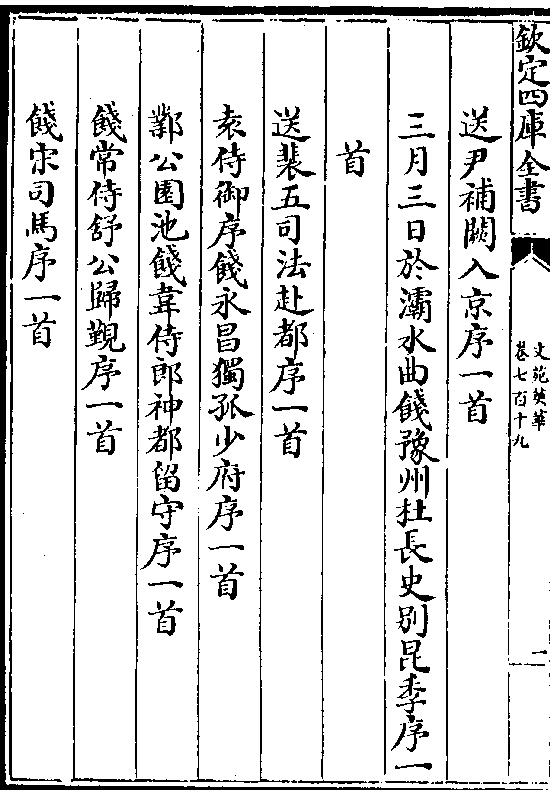 欽定四庫全書
文苑英華
卷七百十九
二
送尹補闕入京序一首
三月三日於灞水曲餞豫州杜長史別昆季序一
首
送裴五司法赴都序一首
袁侍御序餞永昌獨孤少府序一首
鄴公園池餞韋侍郎神都留守序一首
餞常侍舒公歸覲序一首
餞宋司馬序一首